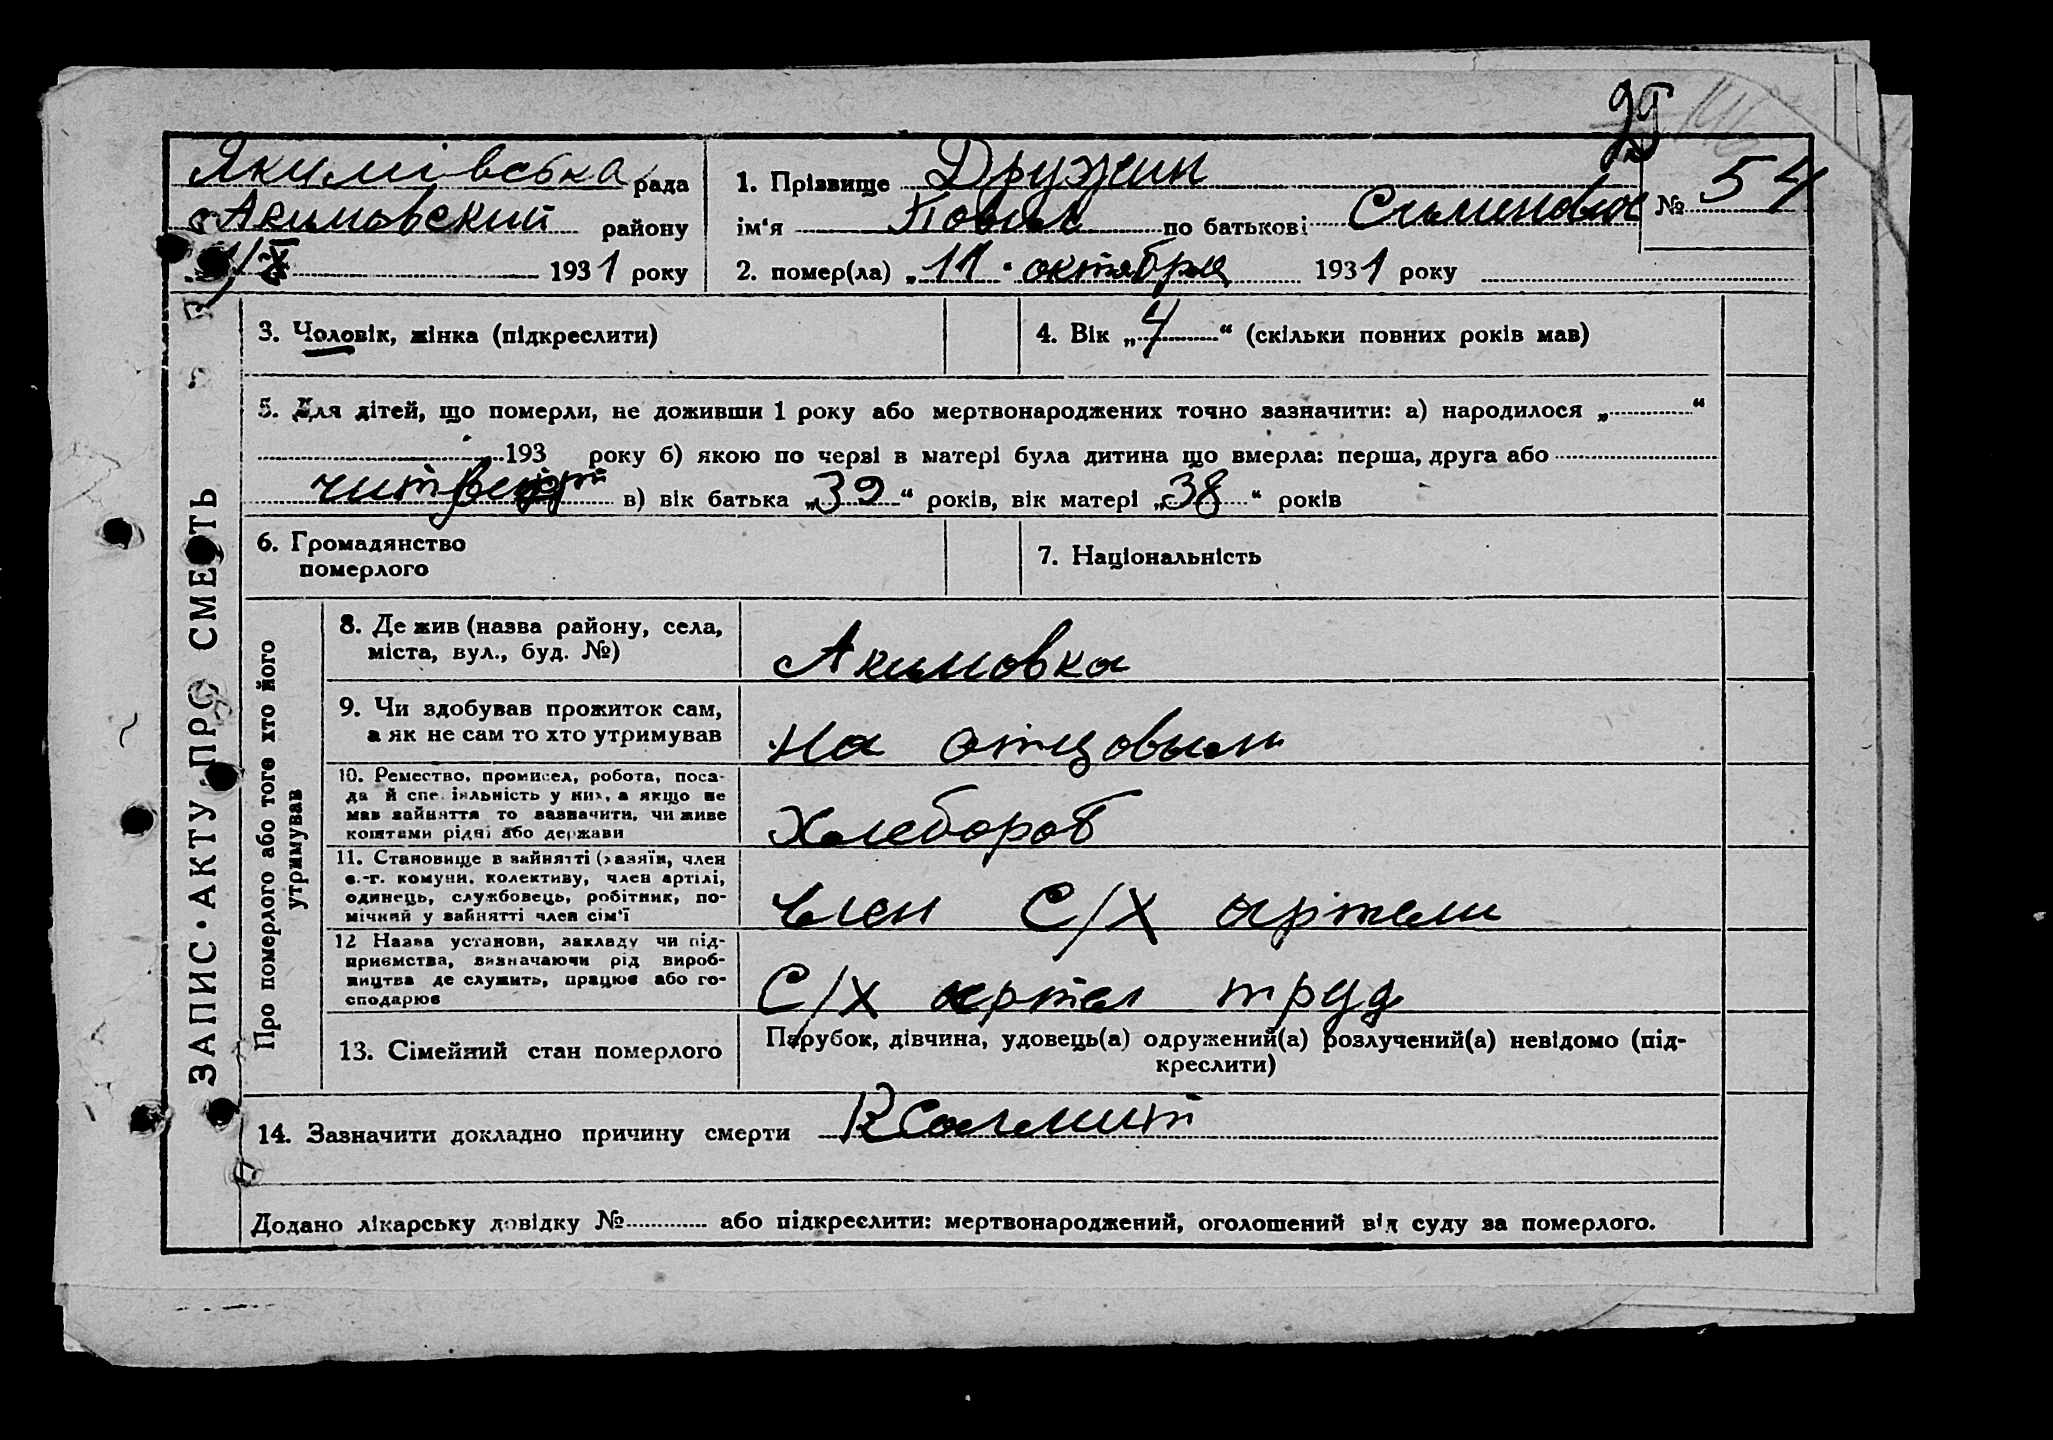 29
Якимівська рада
Акимовский району
11/X 1931 року
1. Прізвище Дружин
ім'я Повел по батькові Сименович
№ 54
2. помер(ла) „11" октября 1931 року
ЗАПИС·АКТУ ПРО СМЕРТЬ
3. Чоловік, жінка (підкреслити)
4. Вік „4" (скільки повних років мав)
5. Для дітей, що померли, не доживши 1 року або мертвонароджених точно зазначити: а) народилося „ "
193 року б) якою по черві в матері була дитина що вмерла: перша, друга або
в) вік батька „39" років, вік матері „38" років
6. Громадянство
померлого
7. Національність
Про померлого або того хто його
утримував
8. Де жив (назва району, села,
міста, вул., буд. №)
Акимовка
9. Чи здобував прожиток сам,
а як не сам то хто утримував
на отцовым
10. Ремество, промисел, робота, поса-
да й спеціяльність у них, а якщо не
мав зайняття то зазначити, чи живе
коштами рідні або держави
Хлебороб
11. Становище в зайнятті (хазяїн, член
с.-г. комуни, колективу, член артілі,
одинець, службовець, робітник, по-
мічний у зайнятті член сім'ї
член С/Х артели
12 Назва установи, закладу чи під-
приємства, зазначаючи рід вироб-
ництва де служить, працює або го-
сподарює
С/Х артел труд
13. Сімейний стан померлого
Парубок, дівчина, удовець(а) одружений(а) розлучений(а) невідомо (під-
креслити)
14. Зазначити докладно причину смерти
Додано лікарську довідку № або підкреслити: мертвонароджений, оголошений від суду за померлого.